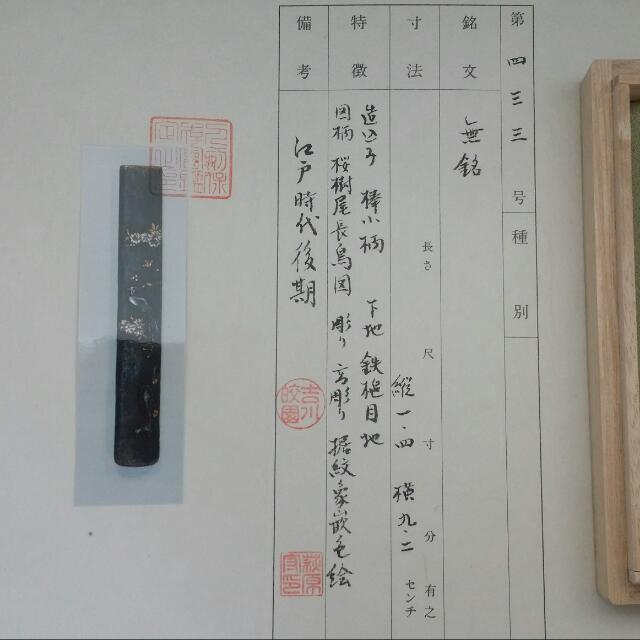 第四三三号
種別
銘文
無銘
寸法
長さ 尺 寸 分 有之
縦一・四 横九・二 センチ
特徴
造込み 棒小柄 下地 鉄槌目地
図柄 桜樹尾長鳥図 彫り 高彫り 据紋象嵌色絵
備考
江戸時代後期
吉川皎園
萩原守印